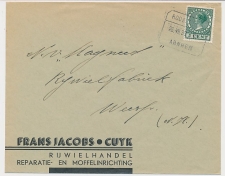 N.V. "Magneet"
Rijwielfabriek
Weesp.
(N.H.)
FRANS JACOBS • CUYK
RIJWIELHANDEL
REPARATIE- EN MOFFELINRICHTING